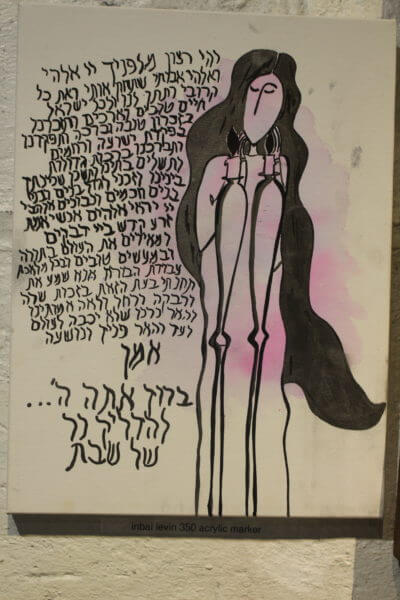 יהי רצון מלפניך יי אלהי
ואלהי אבותי שתחונן אותי ואת כל
קרובי ותתן לנו ולכל ישראל
חיים טובים וארוכים ותזכרנו
בזכרון טובה וברכה ותפקדנו
בפקדת ישועה ורחמים
ברכות גדולות
שכינתך
בינינו וזכני לגדל בנים ובני
בנים חכמים ונבונים אוהבי
יי יראי אלהים אנשי אמת
זרע קדש ביי דבקים
ומאירים את העולם בתורה
ובמעשים טובים ובכל מלאכת
עבודת הבורא אנא שמע את
תחנתי בעת הזאת בזכות שרה
ורבקה ורחל ולאה אמותינו
והאר נרנו שלא יכבה לעולם
ועד והאר פניך ונושעה
אמן
ברוך אתה ה'...
להדליק נר
של שבת
inbal levin 350 acrylic marker